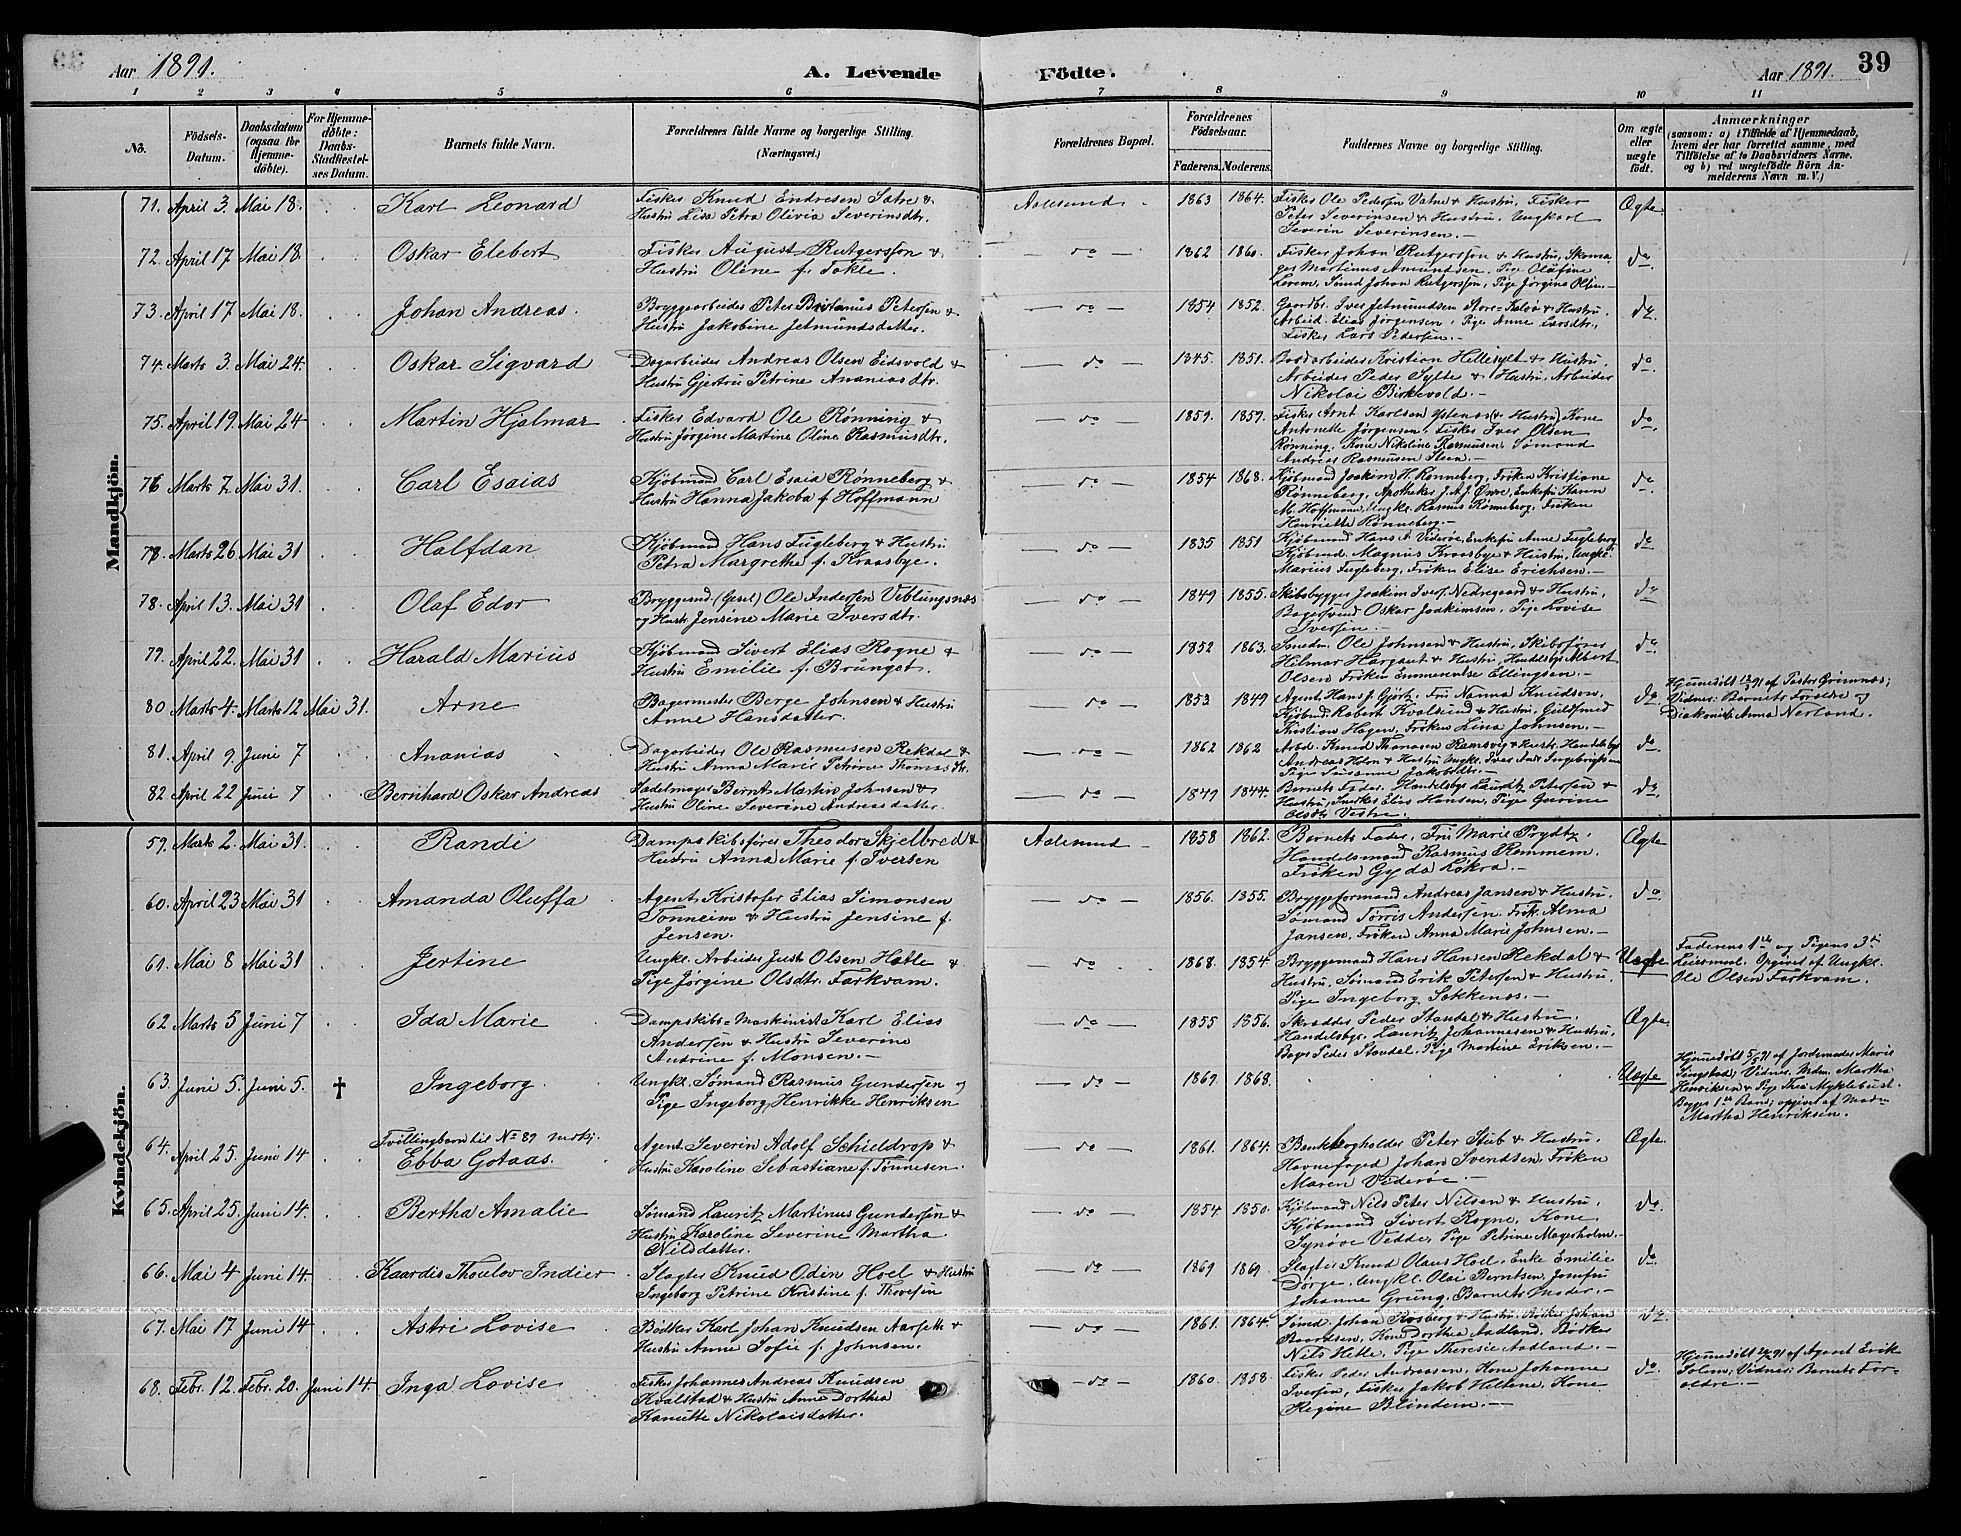 Aar 1891.
A. Levende
Födte.
Aar 1891.
39
1 2 3 4 5 6 7 8 9 10 11
No.
Födsels-
Datum.
Daabsdatum
(ogsaa for
Hjemme-
døbte).
For Hjemme-
døbte:
Daabs-
Stadfæstel-
ses Datum.
Barnets fulde Navn.
Forældrenes fulde Navne og borgerlige Stilling.
(Næringsvei.)
Forældrenes Bopæl.
Forældrenes
Födselsaar.
Faderens. Moderens.
Faddernes Navne og borgerlige Stilling.
Om ægte
eller
uægte
födt.
Anmærkninger
(saasom: a) i Tilfælde af Hjemmedaab,
hvem der har forrettet samme, med
Tilföielse af to Daabsvidners Navne,
og b) ved uægtefödte Börn An-
melderens Navn m. V.)
Mandkjön.
71. April 3. Mai 18. Karl Leonard
Fisker Knud Endresen Satre &
Hustru Lisa Petra Olivia Severinsdtr.
Aalesund 1863 1864.
Fisker Ole Pedersen Vatne & Hustru, Fisker
Peter Severinsen & Hustru, Ungkarl
Severin Severinsen.
Ægte
72. April 17 Mai 18. Oskar Elebert
Fisker August Rutgersson &
Hustru Oline f. Tokle.
do 1862 1860.
Fisker Johan Rutgersson & Hustru, Skoma
ger Martinus Amundsen, Pige Olafine
Lerem, Sømd Johan Rutgersson, Pige Jørgine Olsen.
do
73. April 17 Mai 18. Johan Andreas.
Bryggearbeider Peter Petersen &
Hustru Jakobine Jetmundsdatter.
do 1854 1852.
Gaardbr. Iver Jetmundsen Store-Kalø & Hustru,
Arbeid. Elias Jørgensen, Pige Anne Larsdtr.,
Fisker Lars Pedersen.
do
74. Marts 3. Mai 24. Oskar Sigvard
Dagarbeider Andreas Olsen Eidsvold &
Hustru Gjertru Petrine Ananiasdtr.
do 1845. 1851.
Bodarbeider Kristian Hillesylt & Hustru,
Arbeider Peder Sylte & Hustru, Arbeider
Nikolai Birkevold.
do
75. April 19. Mai 24 Martin Hjalmar
Fisker Edvard Ole Rønning &
Hustru Jørgene Martine Oline Rasmusdtr.
do 1859. 1859.
Fisker Arnt Karlsen Ystenes (& Hustru) Kone
Antonette Jørgensen, Fisker Iver Olsen
Rønning, Kone Nikoline Rasmusen, Sømand
Andreas Rasmusen Steen.
do
76 Marts 7. Mai 31. Carl Esaias
Kjøbmand Carl Esaia Rønneberg &
Hustru Hanna Jakoba f. Hoffmann
do 1854 1868.
Kjøbmand Joakim H. Rønneberg, Frøken Kristiane
Rønneberg, Apotheker J. A. J. Øwre, Enkefru Karen
M. Hoffmann, Ungkr. Rasmus Rønneberg, Frøken
Henriette Rønneberg.
do
Marts 26 Mai 31 Halfdan
Kjøbmand Hans Fugleberg & Hustru
Petra Margrethe f. Kraasbye.
do 1835 1851
Kjøbmand Hans A. Viderøe, Enkefru Anne Fugleberg
Kjøbmd. Magnus Kraasbye & Hustru, Ungkr.
Marius Fugleberg, Frøken Elise Erichsen.
do
78. April 13. Mai 31 Olaf Edor
Bryggemd. (Gesel) Ole Andersen Veblungsnæs
og Hustr Jensine Marie Iversdtr.
do 1849 1855.
Skibsbygger Joakim Ivers. Nedregaard & Hustru,
Bagersvend Oskar Joakimsen, Pige Lovise
Iversen.
do
79. April 22. Mai 31 Harald Marius
Kjøbmand Sivert Elias Rogne &
Hustru Emilie f. Brungot.
do 1852 1863.
Snedkr. Ole Johnsen & Hustru, Skibsfører
Hilmar Hargaut & Hustru, Handelsbgr Albert
Olsen, Frøken Emmerentse Ellingsen.
do
80 Marts 4. Marts 12 Mai 31. Arne
Bagermester Berge Johnsen & Hustru
Anne Hansdatter.
do 1853 1849
Agent Hans J. Gjørtz, Fru Nanna Knudson,
Kjøbmd. Robert Kvalsund & Hustru, Guldsmed
Kristian Hagen, Frøken Lina Johnsen.
do
Hjemmedøbt 12/3 91 af Pastor Grimnæs;
Vidner: Barnets Foreldre og
Diakonisse Anna Nerland.
81. April 9. Juni 7 Ananias
Dagarbeider Ole Rasmusen Rekdal &
Hustru Anna Marie Petrine Thomasdtr.
do 1862 1862
Arbd. Knud Thomasen Ramsvig & Hustr. Handelsbgr
Andreas Holm & Hustru Ungkr. Iver Andr. Ingebrigtsen
Pige Susanne Jakobsdtr.
do
82 April 22 Juni 7 Bernhard Oskar Andreas
Sadelmager Bernt Martin Johnsen &
Hustru Oline Severine Andreasdatter.
do 1849 1844.
Barnets Fader, Handelsbgr Lauritz Petersen &
Hustru, Snedker Elias Hansen, Pige Gurine
Olsdtr Vestre.
do
Kvindekjön.
59. Marts 2. Mai 31. Randi
Dampskibsfører Theodor Skjelbred &
Hustru Anna Marie f. Iversen
Aalesund 1858 1862.
Barnets Fader, Fru Marie Prydtz,
Handelsmand Rasmus Remmem,
Frøken Gyda Løkra.
Ægte
60. April 23 Mai 31 Amanda Oluffa
Agent Kristofer Elias Simonsen
Tonneim & Hustru Jensine f.
Jensen.
do 1856. 1855.
Bryggeformand Andreas Jansen & Hustru,
Sømand Tørris Andersen, Frk. Alma
Jansen, Frøken Anna Marie Johnsen.
do
61. Mai 8 Mai 31 Jertine
Ungkr. Arbeider Just Olsen Hatle &
Pige Jørgine Olsdtr. Farkvam.
do 1868. 1854.
Bryggemand Hans Hansen Rekdal &
Hustru, Sømand Erik Petersen & Hustru,
Pige Ingeborg Sekkenes.
Uægte
Faderens 1te og Pigens 3die
Leiermaal. Opgivet af Ungkr.
Ole Olsen Farkvam.
62 Marts 5 Juni 7 Ida Marie
Dampskibs-Maskinist Karl Elias
Andersen & Hustru Severine
Andrine f. Monsen.
do 1855 1856.
Skrædder Peder Standal & Hustru,
Handelsbgr. Lauritz Johannesen & Hustru,
Bager Peder Standal, Pige Martine Eriksen.
Ægte
63. Juni 5. Juni 5. † Ingeborg.
Ungkr. Sømand Rasmus Gundersen og
Pige Ingeborg Henrikke Henriksen
do 1869. 1868.
Uægte
Hjemmedøbt 5/6 91 af Jordemoder Marie
Singstad; Vidner: Mdm. Martha
Henriksen & Pige Thea Myklebust.
Begges 1ste Barn; opgivet af Madm
Martha Henriksen.
64. April 25. Juni 14
Tvillingbarn til No 89 mdkj.
Ebba Gotaas.
Agent Severin Adolf Schieldrop &
Hustru Karoline Sebastiane f. Tønnesen.
do 1861. 1864.
Bankbogholder Peter Stub & Hustru,
Havnefoged Johan Svendsen, Frøken
Maren Viderøe.
Ægte.
65. April 25. Juni 14. Bertha Amalie
Sømand Lauritz Martinus Gundersen &
Hustru Karoline Severine Martha
Nilsdatter.
do 1854 1850.
Kjøbmand Nils Peter Nilsen & Hustru,
Kjøbmand Sivert Rogne, Kone
Synøve Vedde, Pige Petrine Magerholm.
do.
66. Mai 4 Juni 14. Kaardis Thoulov Indier
Slagter Knud Odin Hoel & Hustru
Ingeborg Petrine Kristine f. Thoresen
do 1869 1869.
Slagter Knud Olaus Hoel, Enke Emilie
Dørge, Ungkr. Olai Berntsen, Jomfru
Johanne Grung, Barnets Moder.
do
67. Mai 17 Juni 14. Astri Lovise
Bødker Karl Johan Knudsen Aarseth &
Hustru Anne Sofie f. Johnsen.
do 1861. 1864.
Sømd. Johan Rosberg & Hustru, Johan
Baardsen, Kone Dorthea Aadland, Bødker
Nils Hetle, Pige Theresie Aadland.
do
68. Febr. 12. Febr. 20. Juni 14. Inga Lovise
Fisker Johannes Andreas Knudsen
Kvalstad & Hustru Anne Dorthea
Kanutte Nikolaisdatter.
do 1860. 1858.
Fisker Peder Andreassen, Kone Johanne
Iversen, Fisker Jakob Hellene, Kone
Regine Blindem.
do.
Hjemmedøbt 20/2 91 af Agent Erik
Solem; Vidner: Barnets For-
ældre.